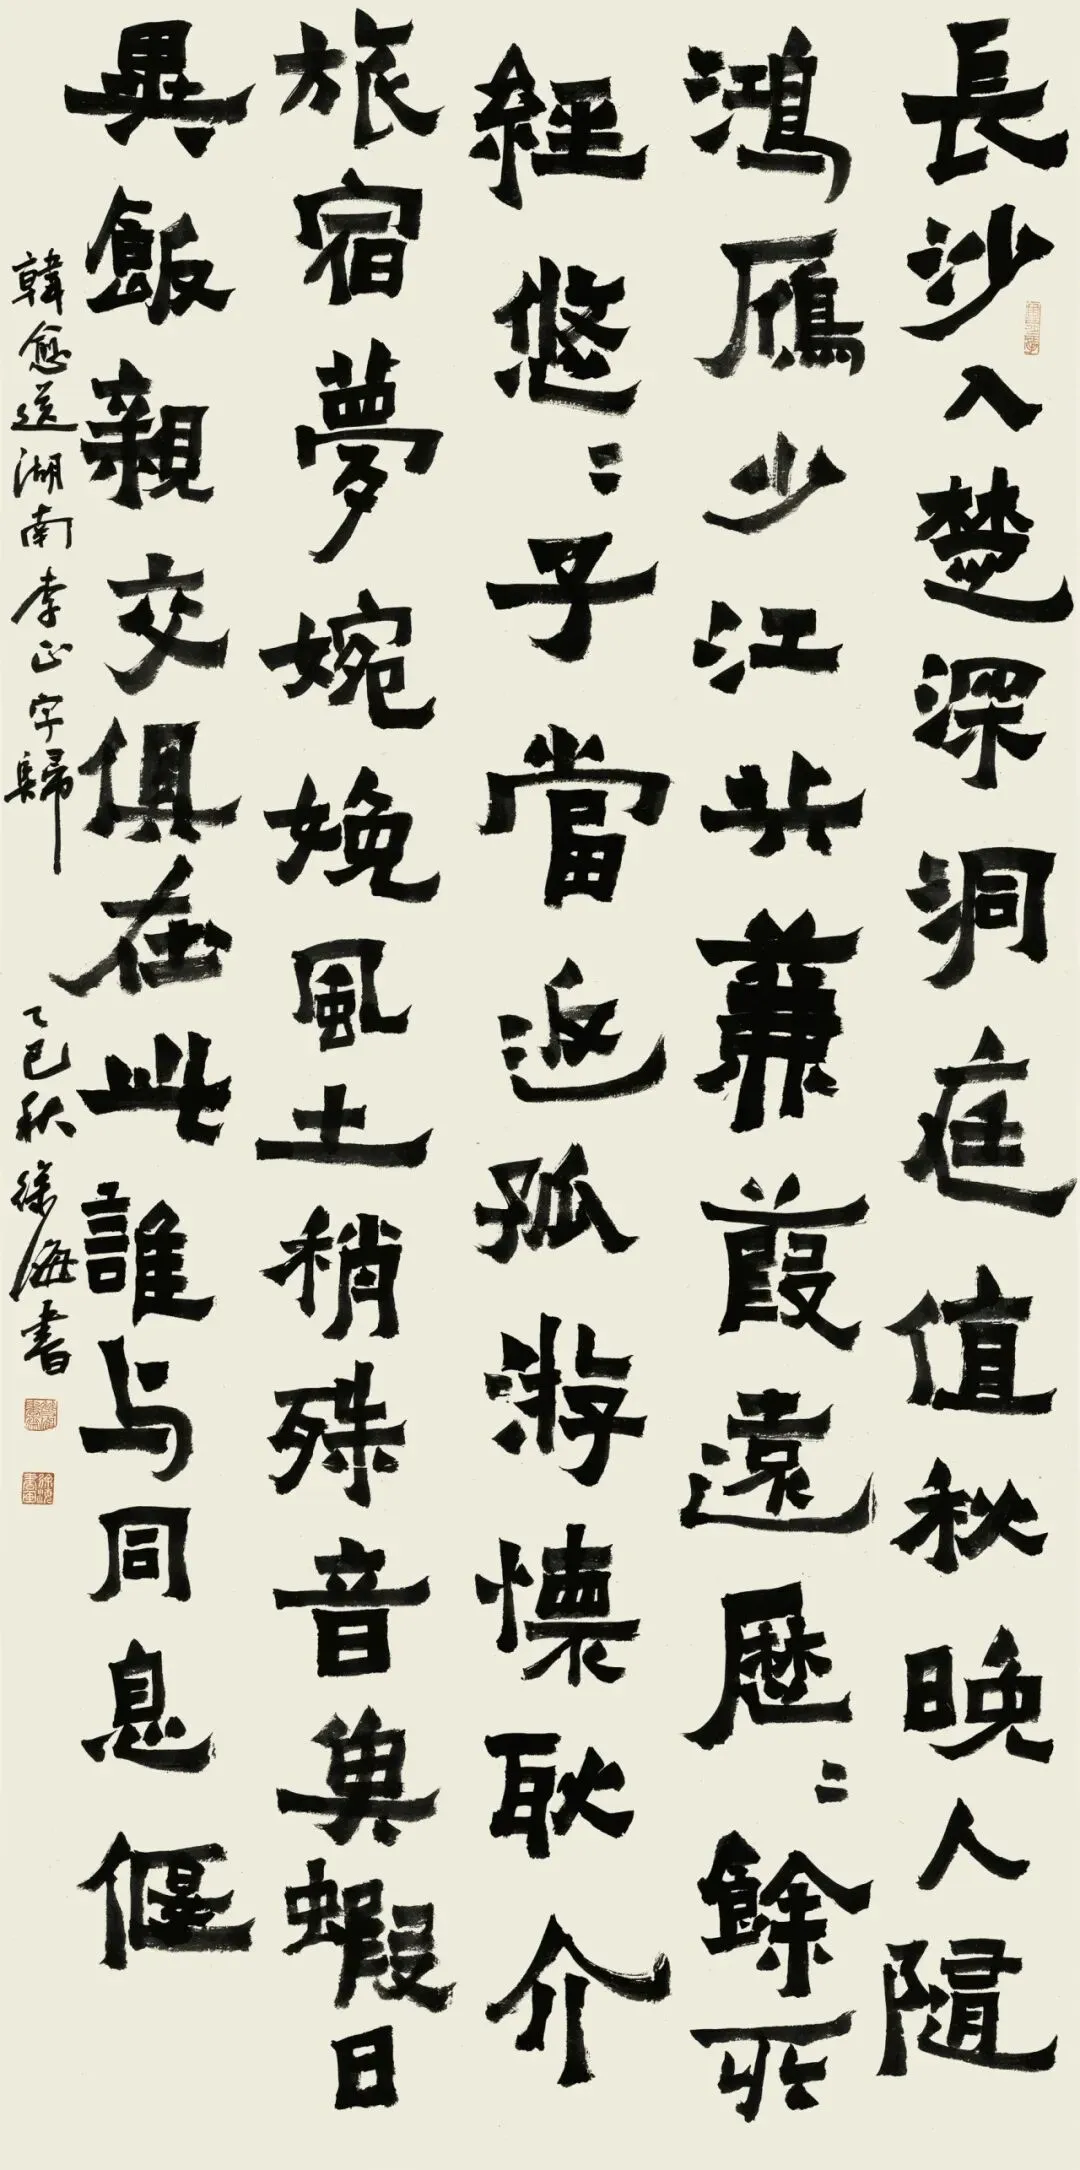 長沙入楚深洞庭值秋晚人隨
鴻鴈少江共蒹葭遠歷〻餘所
經悠〻子當返孤游懷耿介
旅宿夢婉娩風土稍殊音魚蝦日
異飯親交俱在此誰与同息偃
韓愈送湖南李正字歸 乙巳秋徐海書